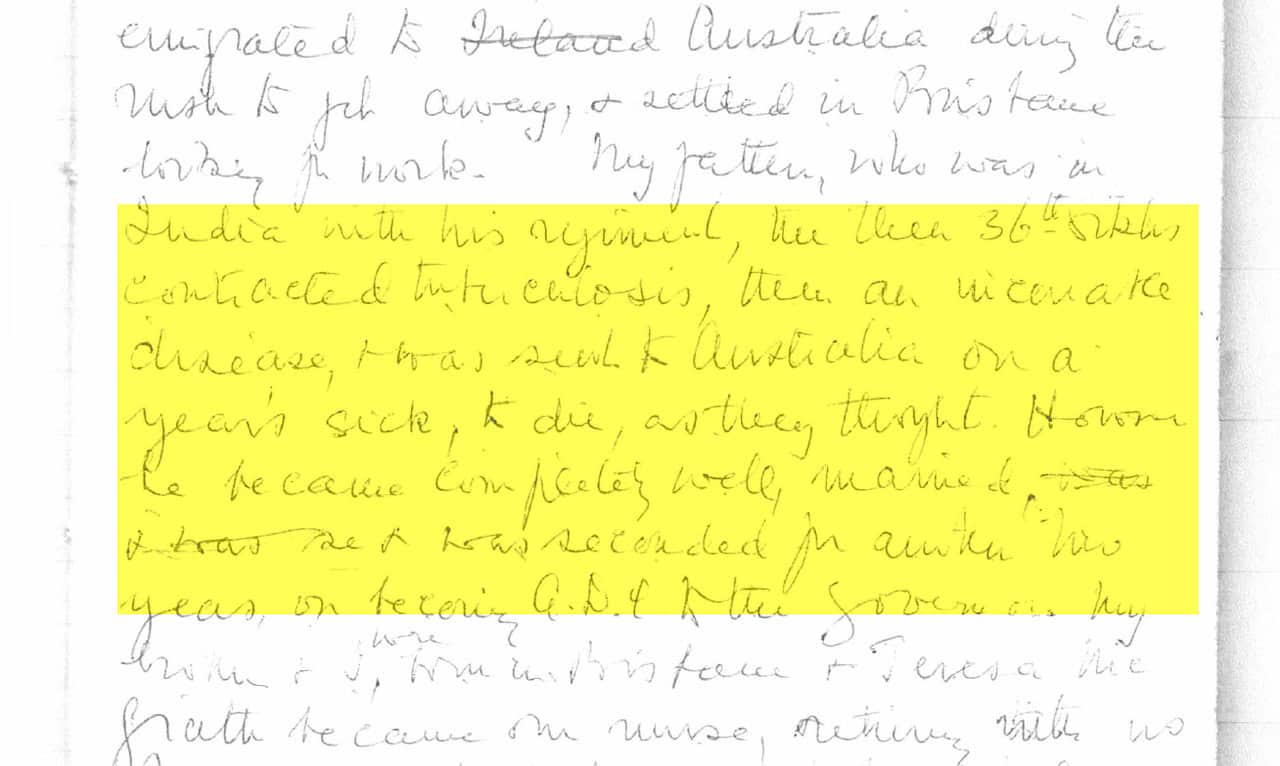 emigrated to Ireland Australia during the
rush to get away, & settled in Brisbane
looking for work. My father, who was in
India with his regiment, the then 36th Sikhs
contracted tuberculosis, then an incurable
disease, & was sent to Australia on a
year's sick, to die, as they thought. However
he became completely well, married, was
& was se & was seconded for another two
years, on becoming A.D.C to the Governor. My
brother & I, were born in Brisbane & Teresa Mc
Grath became our nurse, returning with us